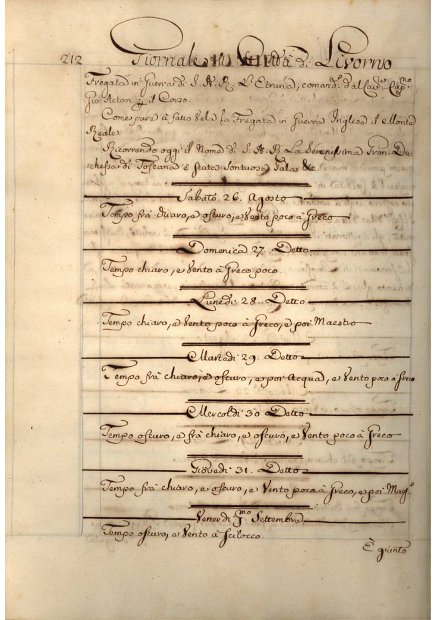 212 Giornale di Sanità di Livorno
Fregata in Guerra di S. A. R. L'Etruria, comand.ᵃ dal Cav.ʳ Cap.ⁿᵒ
Gio: Acton p. il Corso.
Come pure à fatto vela la Fregata in Guerra Inglese il Monta
Reale.
Ricorrendo oggi il Nome di S. A. R. La Serenissima Gran Du-
chessa di Toscana è stata sontuosa Galas &c.
Sabato 26. Agosto
Tempo frà chiaro, e oscuro, e Vento poco à Greco
Domenica 27. Detto
Tempo chiaro, e Vento à Greco poco
Lunedi 28. Detto
Tempo chiaro, e Vento poco à Greco, e poi Maestro
Martedi 29. Detto
Tempo frà chiaro, e oscuro, e poi Acqua, e Vento poco à Greco
Mercoldi 30 Detto
Tempo oscuro, e frà chiaro, e oscuro, e Vento poco à Greco
Giovedi 31. Detto
Tempo frà chiaro, e oscuro, e Vento poco à Greco, e poi Mag.º
Venerdi P.ᵐᵒ Settembre
Tempo oscuro, e Vento à Scilocco
È giunto